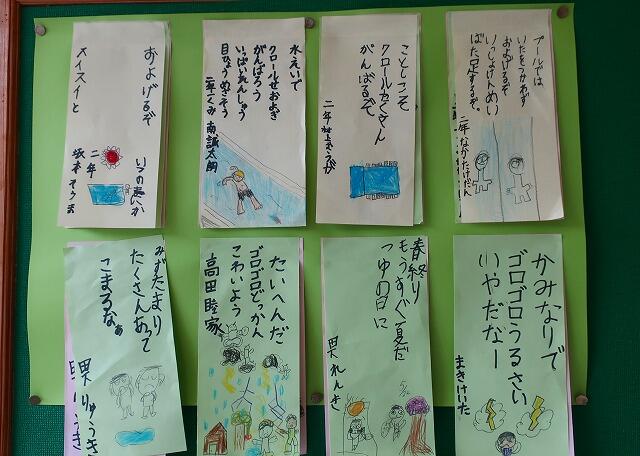 プールでは
いたをつかわず
およげるぞ
いっしょけんめい
ばた足するぞ。
二年 なかたけだん
ことしこそ
クロールたくさん
がんばるぞ
二年
水えいで
クロールせおよぎ
がんばろう
いっぱいれんしゅう
目ひょうめざそう
二年一くみ 南誠太朗
およげるぞ
いつのまにか
スイスイと
二年
坂本そうま
かみなりで
ゴロゴロうるさい
いやだなー
まきけいた
春終り
もうすぐ夏だ
つゆの日に
たいへんだ
ゴロゴロどっかん
こわいよう
高田陸家
みずたまり
たくさんあって
こまるなぁ
りゅうき